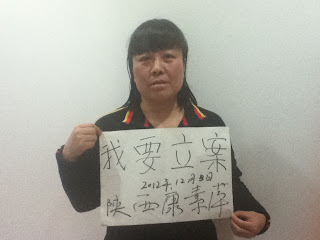 我要立案
2012年12月5日
陕西康素萍